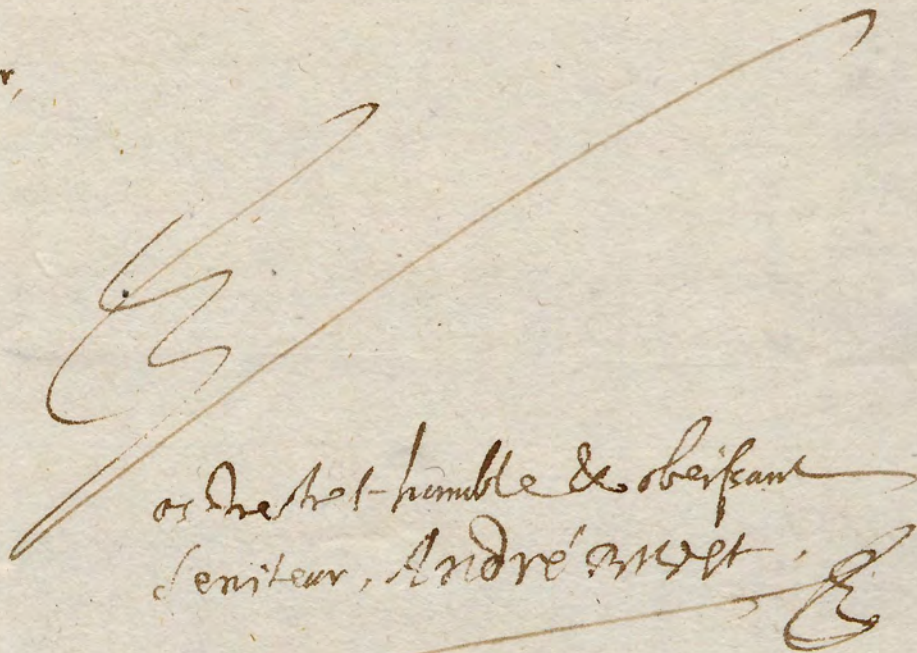 Vostre tres-humble & obeissant
serviteur, André Rivet.